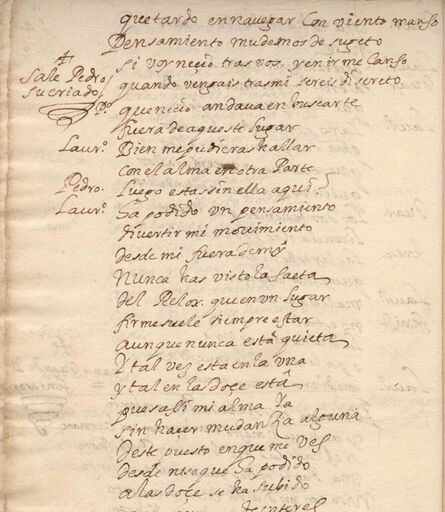 que tardo en navegar con viento manso
Pensamiento mudemos de sugeto
si voy necio tras vos, y en irme canso
quando vengais tras mi sereis discreto
Sale Pedro
su criado
Po. que necio andava en buscarte
fuera de aqueste lugar
Laurº. Bien me pudieras hallar
con el alma en otra Parte
Pedro. Luego estas sin ella aqui?
Laurº. Ha podido un pensamiento
divertir mi movimiento
desde mi fuera de my
Nunca has visto la saeta
del Relox. que en un lugar
firme suele siempre estar
aunque nunca està quieta
Y tal vez esta en la una
y tal en las doce està
pues assi mi alma ya
sin hacer mudanza alguna
deste puesto en que me ves
desde que ha podido
a las doce se ha subido